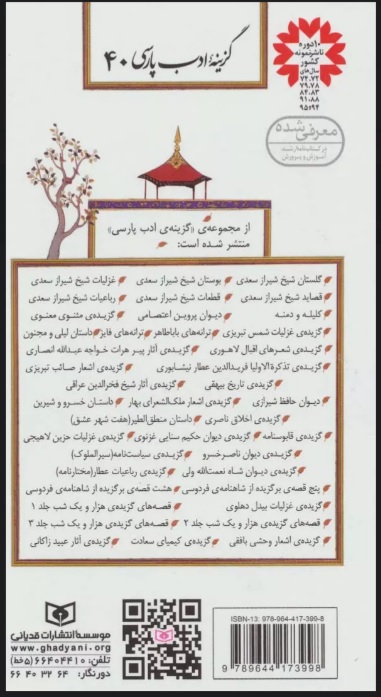 گزینهٔ ادب پارسی ۴۰
۱۰ دوره
ناشر نمونه
کشور
سال‌های
۷۲،۷۴
۷۹،۷۸
۸۲،۸۳
۹۱،۸۸
۹۵و۹۴
معرفی شده
در کتاب‌نامه‌ٔ رشد
آموزش و پرورش
از مجموعه‌ی «گزینه‌ی ادب پارسی»
منتشر شده است:
گلستان شیخ شیراز سعدی بوستان شیخ شیراز سعدی غزلیات شیخ شیراز سعدی
قصاید شیخ شیراز سعدی قطعات شیخ شیراز سعدی رباعیات شیخ شیراز سعدی
کلیله و دمنه دیوان پروین اعتصامی گزیده‌ی مثنوی معنوی
گزیده‌ی غزلیات شمس تبریزی ترانه‌های باباطاهر ترانه‌های فایز داستان لیلی و مجنون
گزیده‌ی شعرهای اقبال لاهوری گزیده‌ی آثار پیر هرات خواجه عبدالله انصاری
گزیده‌ی تذکرةالاولیا فریدالدین عطار نیشابوری گزیده‌ی اشعار صائب تبریزی
گزیده‌ی تاریخ بیهقی گزیده‌ی آثار شیخ فخرالدین عراقی
دیوان حافظ شیرازی گزیده‌ی اشعار ملک‌الشعرای بهار داستان خسرو و شیرین
گزیده‌ی اخلاق ناصری داستان منطق‌الطیر(هفت شهر عشق)
گزیده‌ی قابوسنامه گزیده‌ی دیوان حکیم سنایی غزنوی گزیده‌ی غزلیات حزین لاهیجی
گزیده‌ی دیوان ناصرخسرو گزیده‌ی سیاست‌نامه(سیرالملوک)
گزیده‌ی دیوان شاه نعمت‌الله ولی گزیده‌ی رباعیات عطار(مختارنامه)
پنج قصه‌ی برگزیده از شاهنامه‌ی فردوسی هشت قصه‌ی برگزیده از شاهنامه‌ی فردوسی
گزیده‌ی غزلیات بیدل دهلوی قصه‌های گزیده‌ی هزار و یک شب جلد ۱
قصه‌های گزیده‌ی هزار و یک شب جلد ۲ قصه‌های گزیده‌ی هزار و یک شب جلد ۳
گزیده‌ی اشعار وحشی بافقی گزیده‌ی کیمیای سعادت گزیده‌ی آثار عبید زاکانی
موسسه انتشارات قدیانی
www.ghadyani.org
تلفن: ۶۶۴۰۴۴۱۰ (۵خط)
دورنگار: ۶۶ ۴۰ ۳۲ ۶۴
ISBN-13: 978-964-417-399-8
9 789644 173998